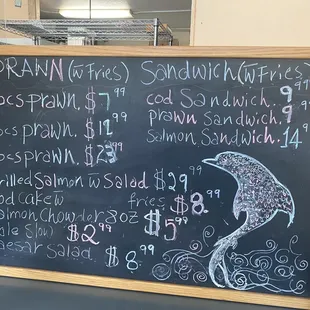 PRANN (w̄ Fries)
ocs prawn. $7.99
ocs prawn. $12.99
ocs prawn.
rilled Salmon w̄ Salad $29.99
od cake w̄ fries $8.99
almon Chowder 8oz $5.99
ale Slow $2.99
aesar salad $8.99
Sandwich (w̄ Fries)
cod Sandwich. 9.99
prawn Sandwich. 9.99
Salmon Sandwich. 14.99